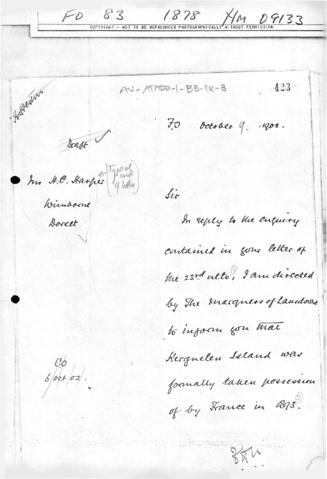 FO 83 1878 HM 09133
COPYRIGHT - NOT TO BE REPRODUCED PHOTOGRAPHICALLY WITHOUT PERMISSION
423
Draft
F.O. October 9. 1902.
Mr H.C. Harper
Wimborne
Dorset
Sir
In reply to the enquiry
contained in your letter of
the 23rd ulto, I am directed
by The Marquess of Lansdowne
to inform you that
Kerguelen Island was
formally taken possession
of by France in 1893.
CO
6/Oct 02.